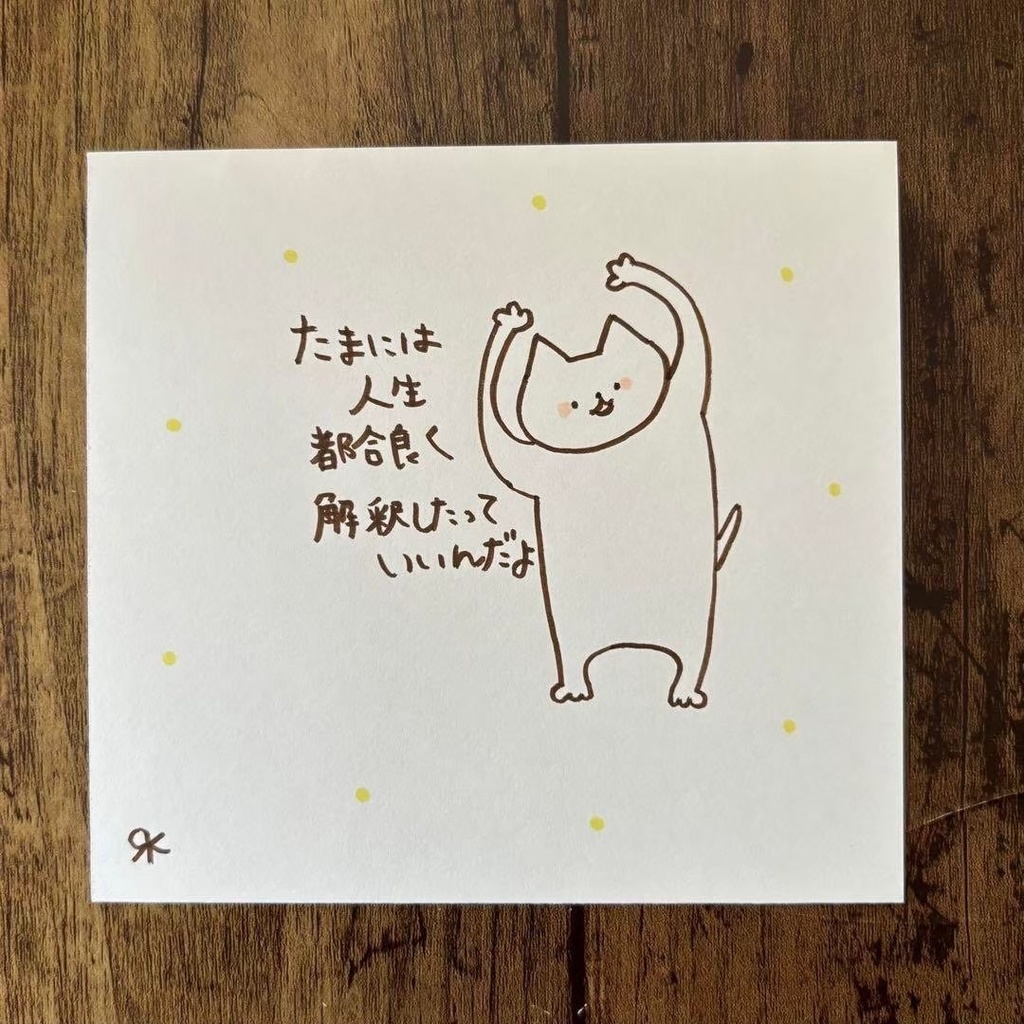 たまには
人生
都合良く
解釈したって
いいんだよ